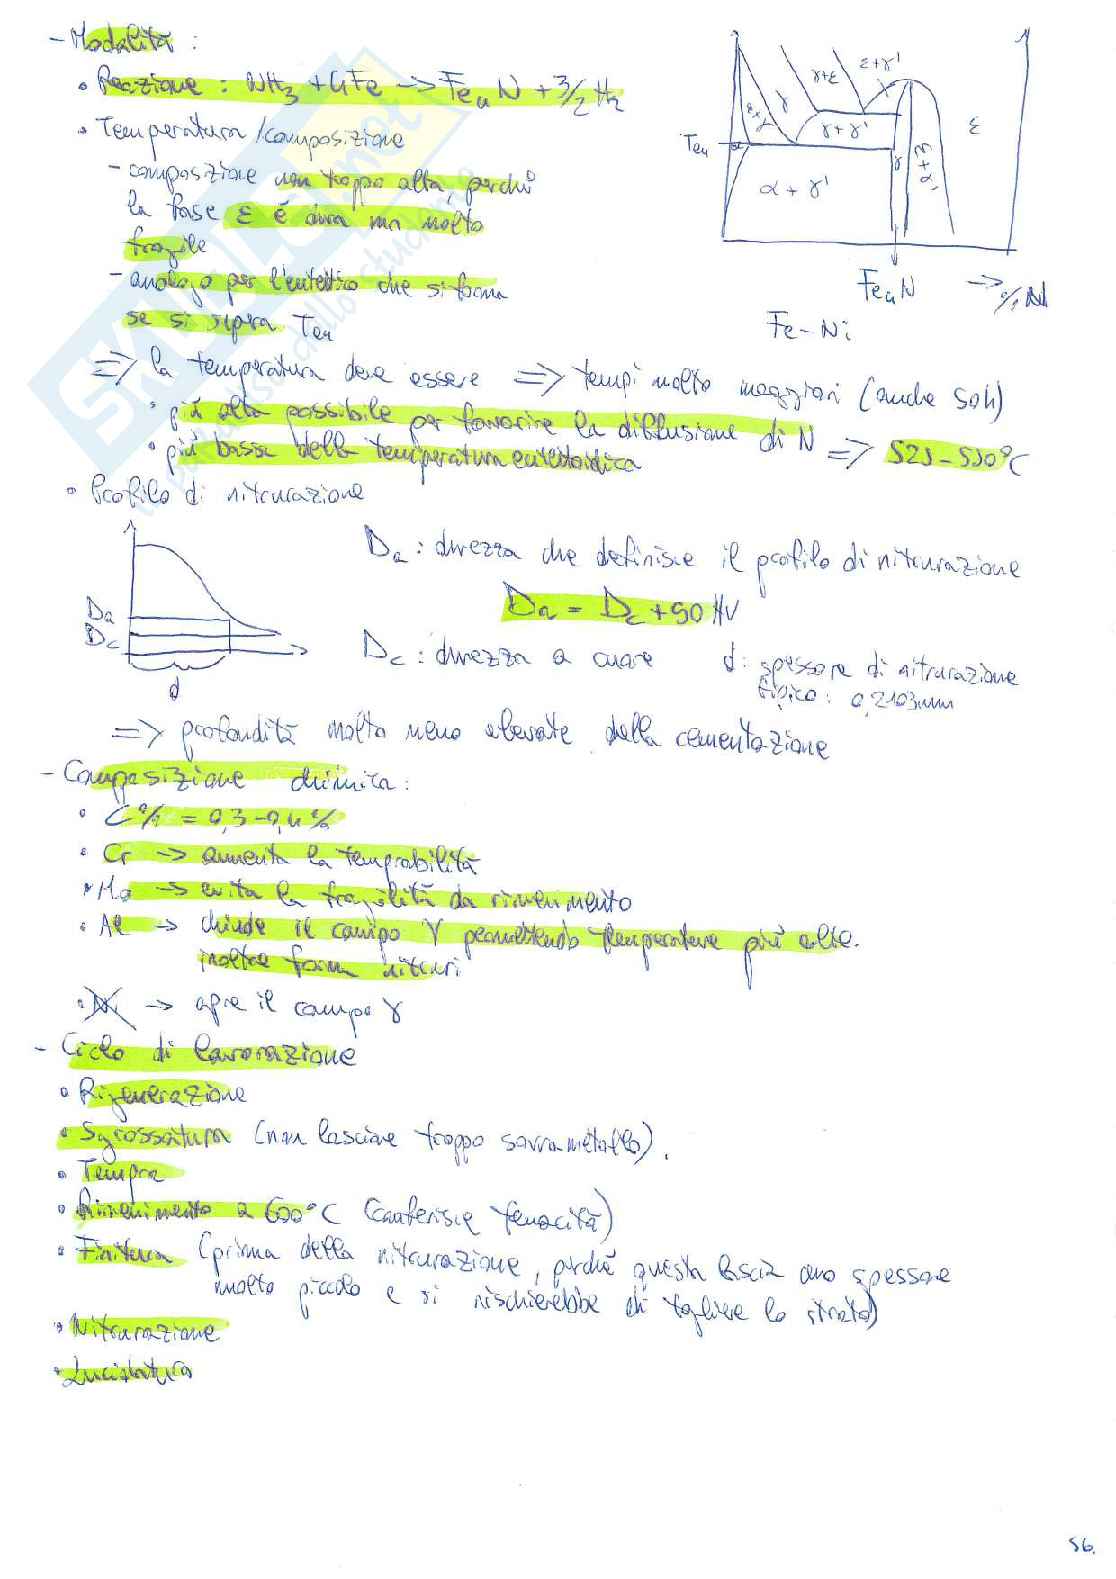 - Modalità :
• Reazione : NH3 + 4Fe -> Fe4N + 3/2 H2
• Temperatura/composizione
- composizione non troppo alta, perché
la fase ε è dura ma molto
fragile
- analogo per l'eutettico che si forma
se si supera Teu
=> la temperatura deve essere => tempi molto maggiori (anche 50h)
• più alta possibile per favorire la diffusione di N => 525-530°C
• più bassa della temperatura eutettoidica
Teu
α
γ
γ+ε
ε+γ'
γ+γ'
α+γ'
ε
Fe4N
Fe-Ni
• Profilo di nitrurazione
Da
Dc
d
Da : durezza che definisce il profilo di nitrurazione
Da = Dc + 50 HV
Dc : durezza a cuore d: spessore di nitrurazione
tipico: 0,2÷0,3mm
=> profondità molto meno elevate della cementazione
- Composizione chimica :
• C% = 0,3-0,4%
• Cr -> aumenta la temprabilità
• Mo -> evita la fragilità da rinvenimento
• Al -> chiude il campo γ permettendo temperature più alte.
inoltre forma nitruri
• Ni -> apre il campo γ
- Ciclo di lavorazione
• Rigenerazione
• Sgrossatura (non lasciare troppo sovrametallo).
• Tempra
• Rinvenimento a 600°C (conferisce tenacità)
• Finitura (prima della nitrurazione, perché questa lascia uno spessore
molto piccolo e si rischierebbe di togliere lo strato)
• Nitrurazione
• Lucidatura
56.